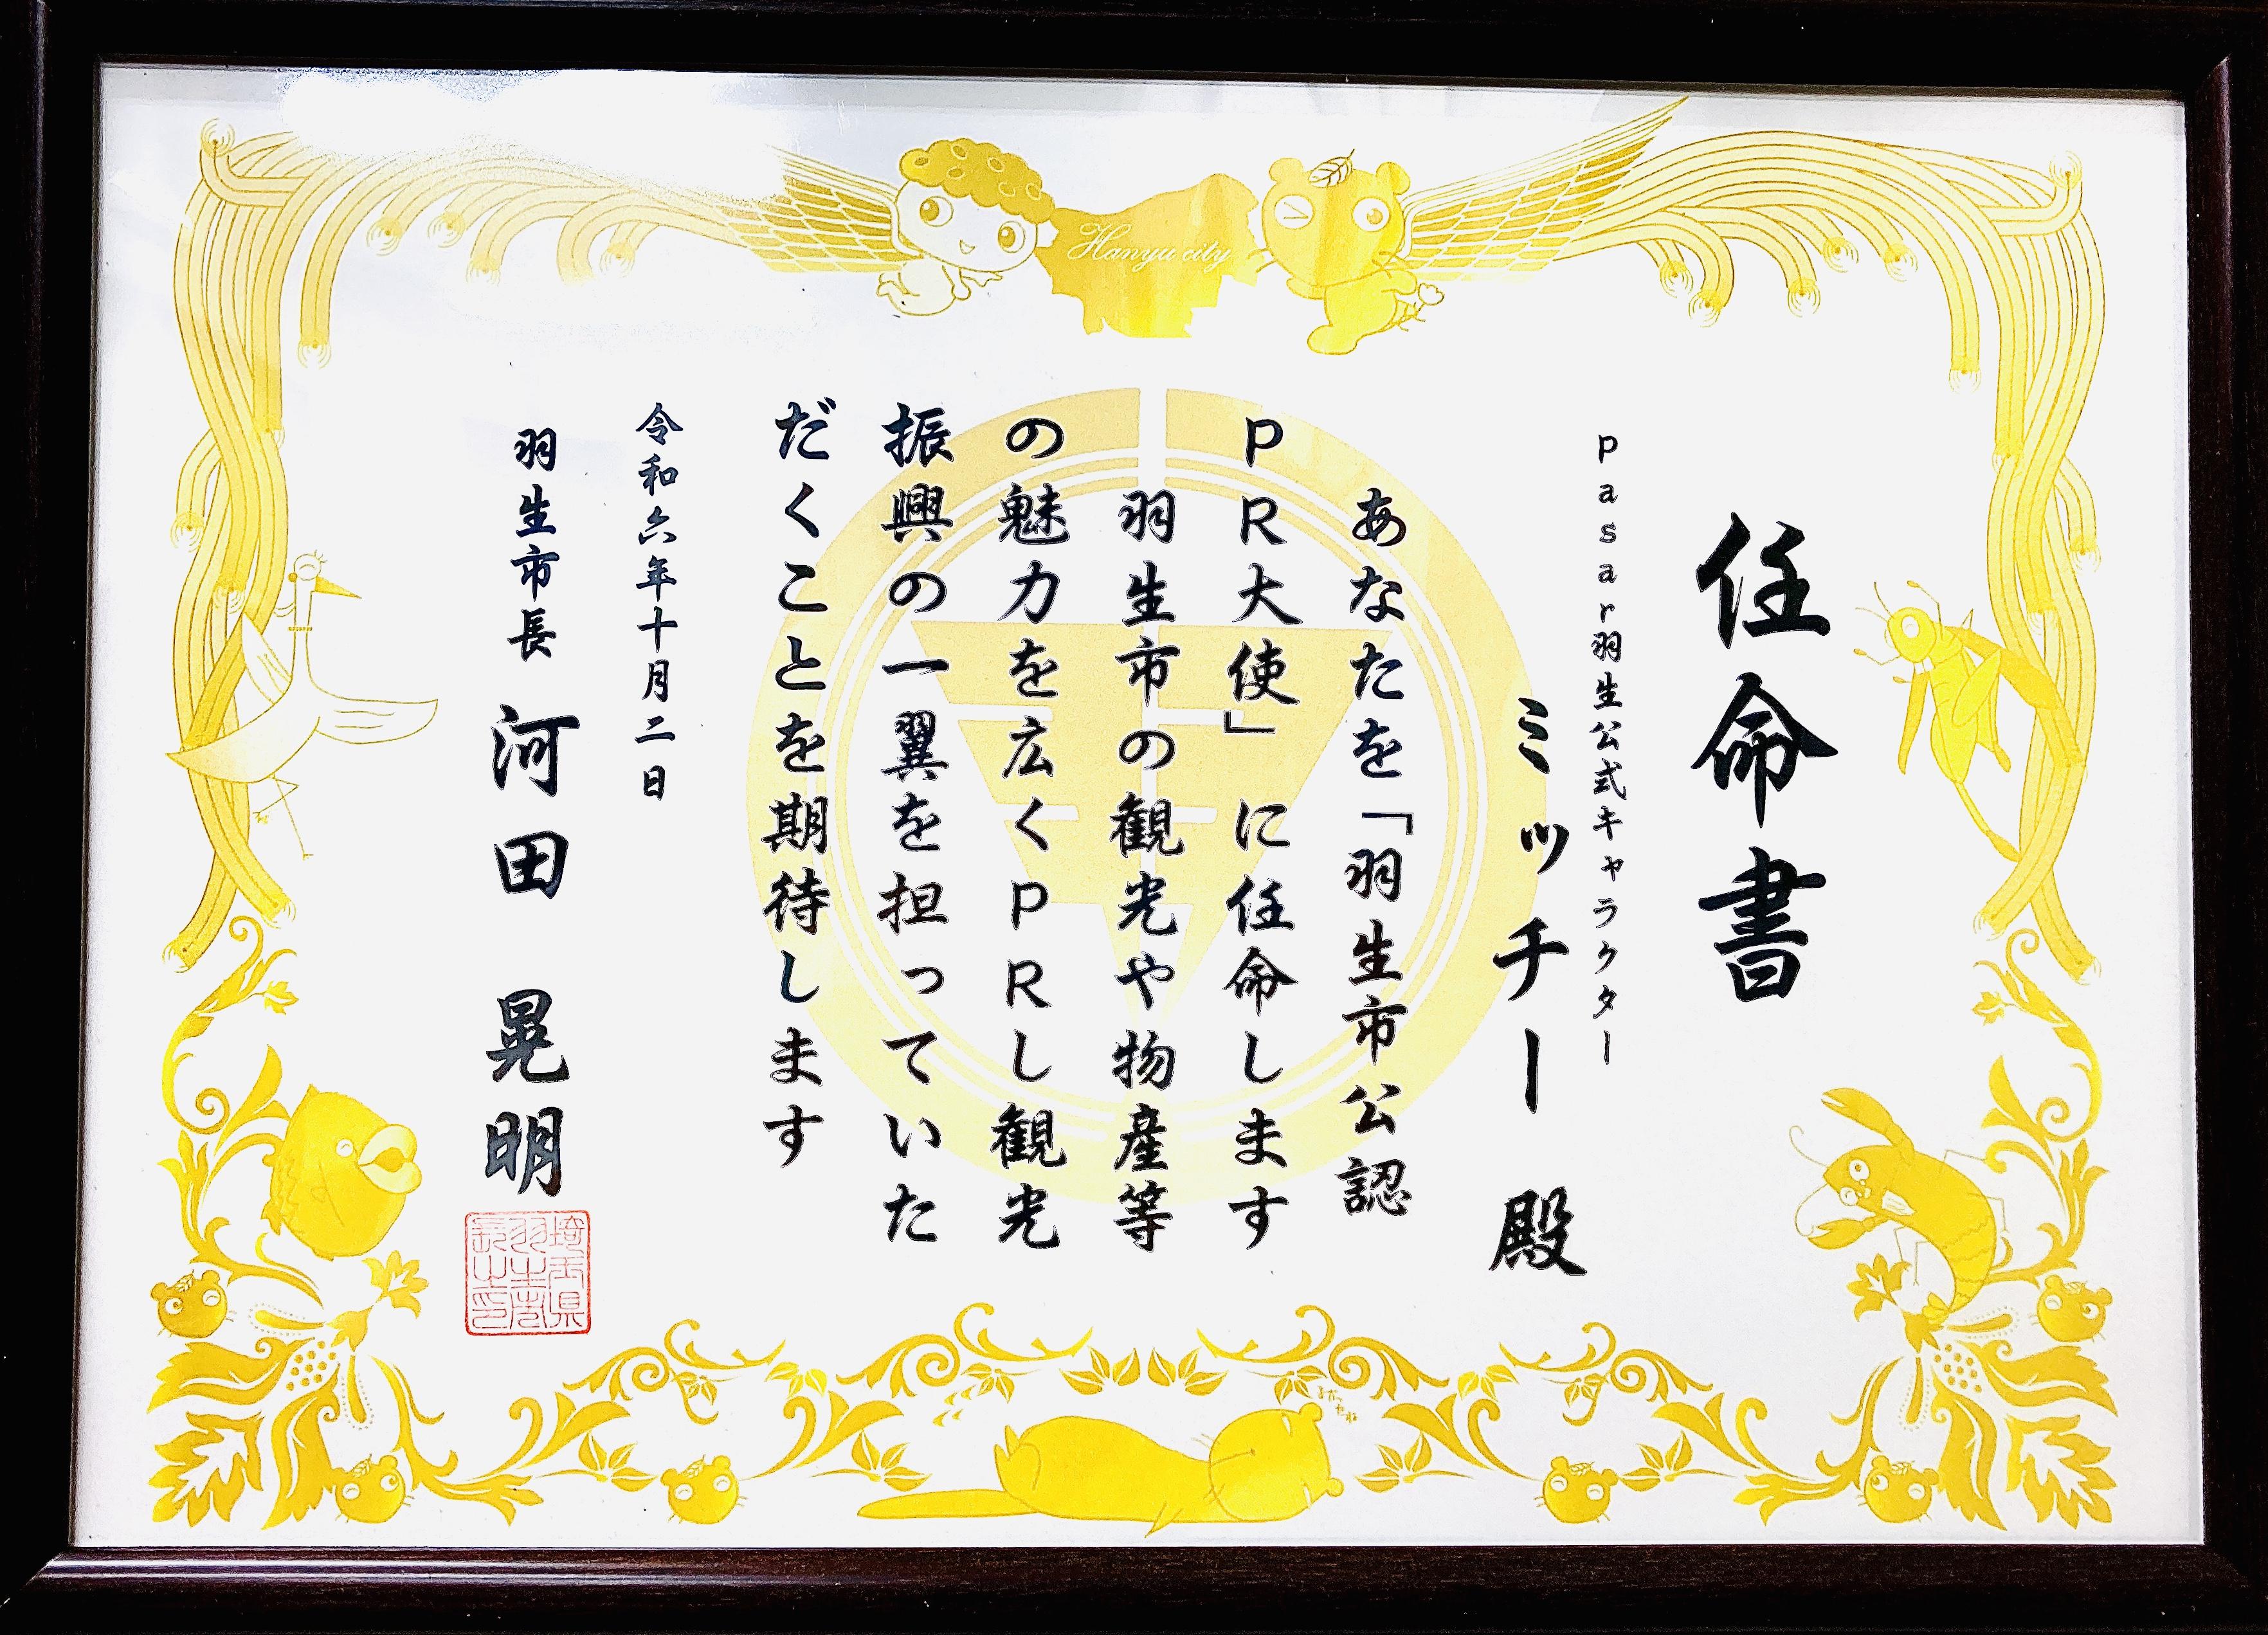 Hanyu city
任命書
Pasar羽生公式キャラクター
ミッチー 殿
あなたを「羽生市公認
PR大使」に任命します
羽生市の観光や物産等
の魅力を広くPRし観光
振興の一翼を担っていた
だくことを期待します
令和六年十月二日
羽生市長 河田 晃明
埼玉県
羽生市
長之印